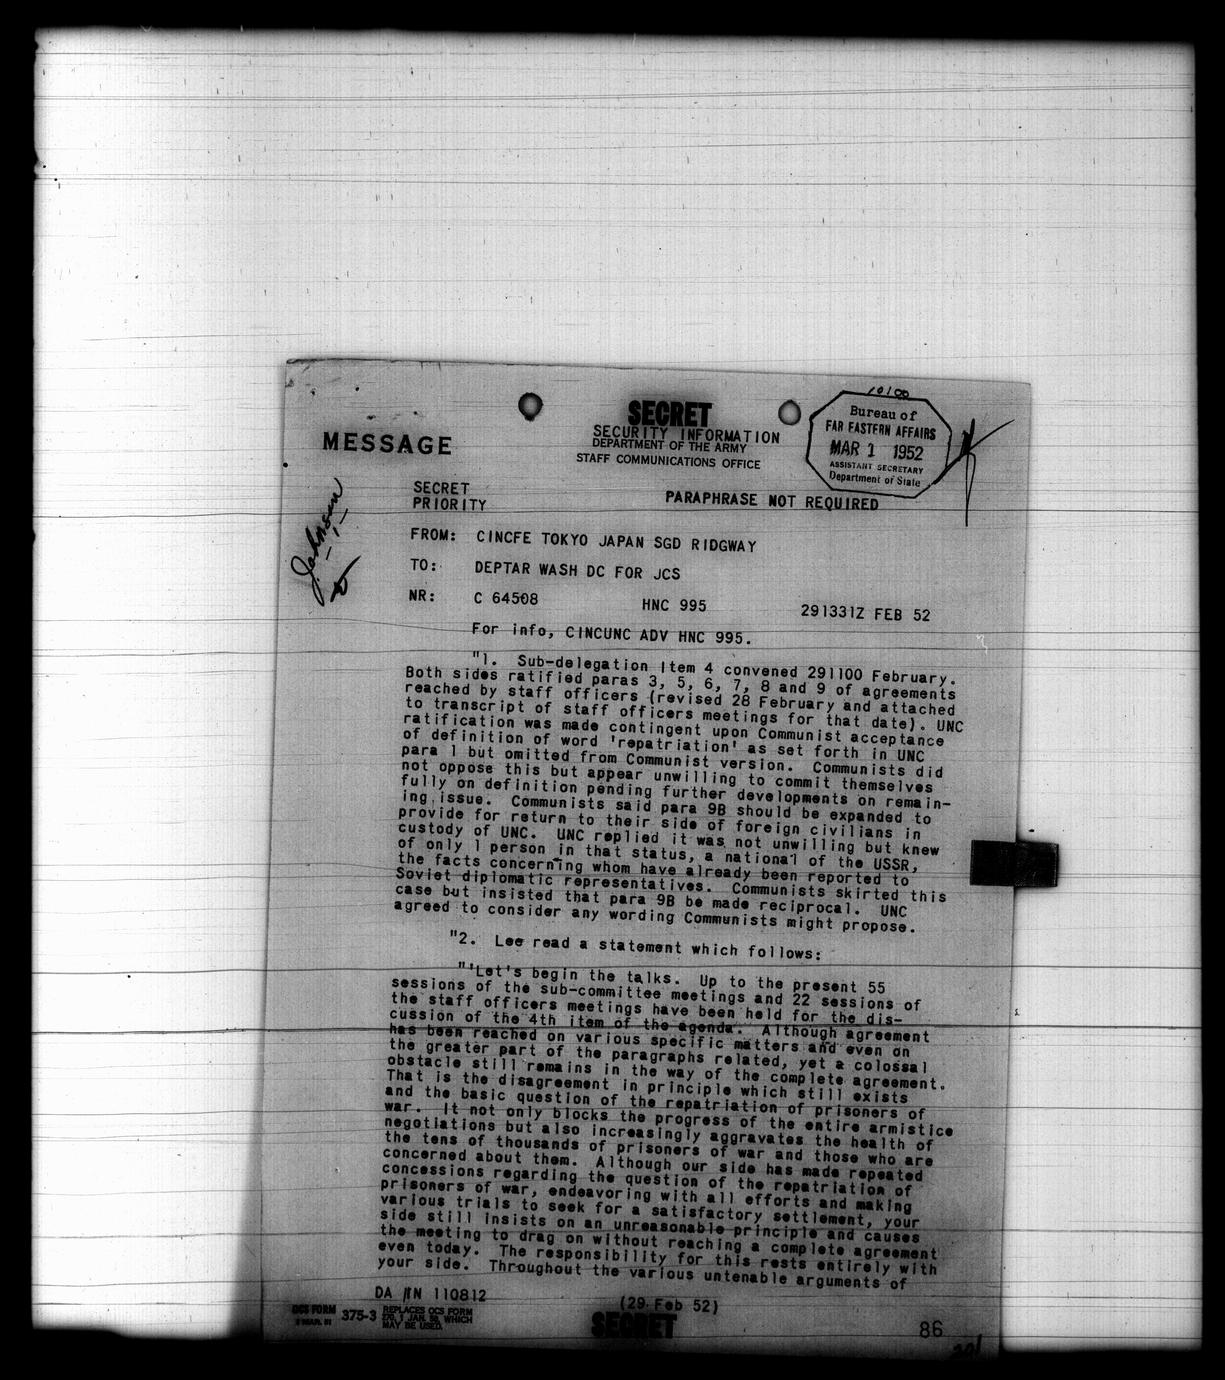 10100
SECRET
SECURITY INFORMATION
DEPARTMENT OF THE ARMY
STAFF COMMUNICATIONS OFFICE
MESSAGE
Bureau of
FAR EASTERN AFFAIRS
MAR 1 1952
ASSISTANT SECRETARY
Department of State
Johnson
SECRET
PRIORITY
PARAPHRASE NOT REQUIRED
FROM: CINCFE TOKYO JAPAN SGD RIDGWAY
TO: DEPTAR WASH DC FOR JCS
NR: C 64508 HNC 995 291331Z FEB 52
For info, CINCUNC ADV HNC 995.
"1. Sub-delegation Item 4 convened 291100 February.
Both sides ratified paras 3, 5, 6, 7, 8 and 9 of agreements
reached by staff officers (revised 28 February and attached
to transcript of staff officers meetings for that date). UNC
ratification was made contingent upon Communist acceptance
of definition of word 'repatriation' as set forth in UNC
para 1 but omitted from Communist version. Communists did
not oppose this but appear unwilling to commit themselves
fully on definition pending further developments on remain-
ing issue. Communists said para 9B should be expanded to
provide for return to their side of foreign civilians in
custody of UNC. UNC replied it was not unwilling but knew
of only 1 person in that status, a national of the USSR,
the facts concerning whom have already been reported to
Soviet diplomatic representatives. Communists skirted this
case but insisted that para 9B be made reciprocal. UNC
agreed to consider any wording Communists might propose.
"2. Lee read a statement which follows:
"'Let's begin the talks. Up to the present 55
sessions of the sub-committee meetings and 22 sessions of
the staff officers meetings have been held for the dis-
cussion of the 4th item of the agenda. Although agreement
has been reached on various specific matters and even on
the greater part of the paragraphs related, yet a colossal
obstacle still remains in the way of the complete agreement.
That is the disagreement in principle which still exists
and the basic question of the repatriation of prisoners of
war. It not only blocks the progress of the entire armistice
negotiations but also increasingly aggravates the health of
the tens of thousands of prisoners of war and those who are
concerned about them. Although our side has made repeated
concessions regarding the question of the repatriation of
prisoners of war, endeavoring with all efforts and making
various trials to seek for a satisfactory settlement, your
side still insists on an unreasonable principle and causes
the meeting to drag on without reaching a complete agreement
even today. The responsibility for this rests entirely with
your side. Throughout the various untenable arguments of
DA IN 110812 (29 Feb 52)
OCS FORM 375-3 REPLACES OCS FORM
2 MAR. 51 370, 1 JAN. 50, WHICH
MAY BE USED.
SECRET
86